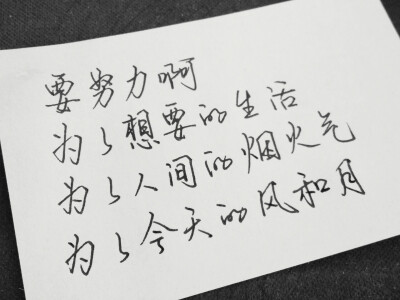 要努力啊
为了想要的生活
为了人间的烟火气
为了今天的风和月